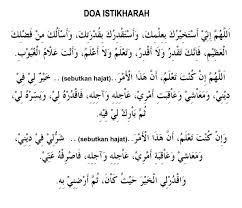 DOA ISTIKHARAH
اَللَّهُمَّ إِنِّيْ أَسْتَخِيْرُكَ بِعِلْمِكَ، وَأَسْتَقْدِرُكَ بِقُدْرَتِكَ، وَأَسْأَلُكَ مِنْ فَضْلِكَ
الْعَظِيْمِ، فَإِنَّكَ تَقْدِرُ وَلَا أَقْدِرُ، وَتَعْلَمُ وَلَا أَعْلَمُ، وَأَنْتَ عَلَّامُ الْغُيُوْبِ.
اَللَّهُمَّ إِنْ كُنْتَ تَعْلَمُ، أَنَّ هَذَا الْأَمْرَ.. (sebutkan hajat) .. خَيْرٌ لِيْ فِيْ
دِيْنِيْ، وَمَعَاشِيْ وَعَاقِبَتِ أَمْرِيْ، عَاجِلِهِ وَآجِلِهِ، فَاقْدُرْهُ لِيْ، وَيَسِّرْهُ لِيْ،
ثُمَّ بَارِكْ لِيْ فِيْهِ
وَإِنْ كُنْتَ تَعْلَمُ، أَنَّ هَذَا الْأَمْرَ.. (sebutkan hajat) .. شَرٌّ لِيْ فِيْ دِيْنِيْ،
وَمَعَاشِيْ وَعَاقِبَةِ أَمْرِيْ، عَاجِلِهِ وَآجِلِهِ، فَاصْرِفْهُ عَنِّيْ،
وَاقْدُرْ لِي الْخَيْرَ حَيْثُ كَانَ، ثُمَّ أَرْضِنِيْ بِهِ